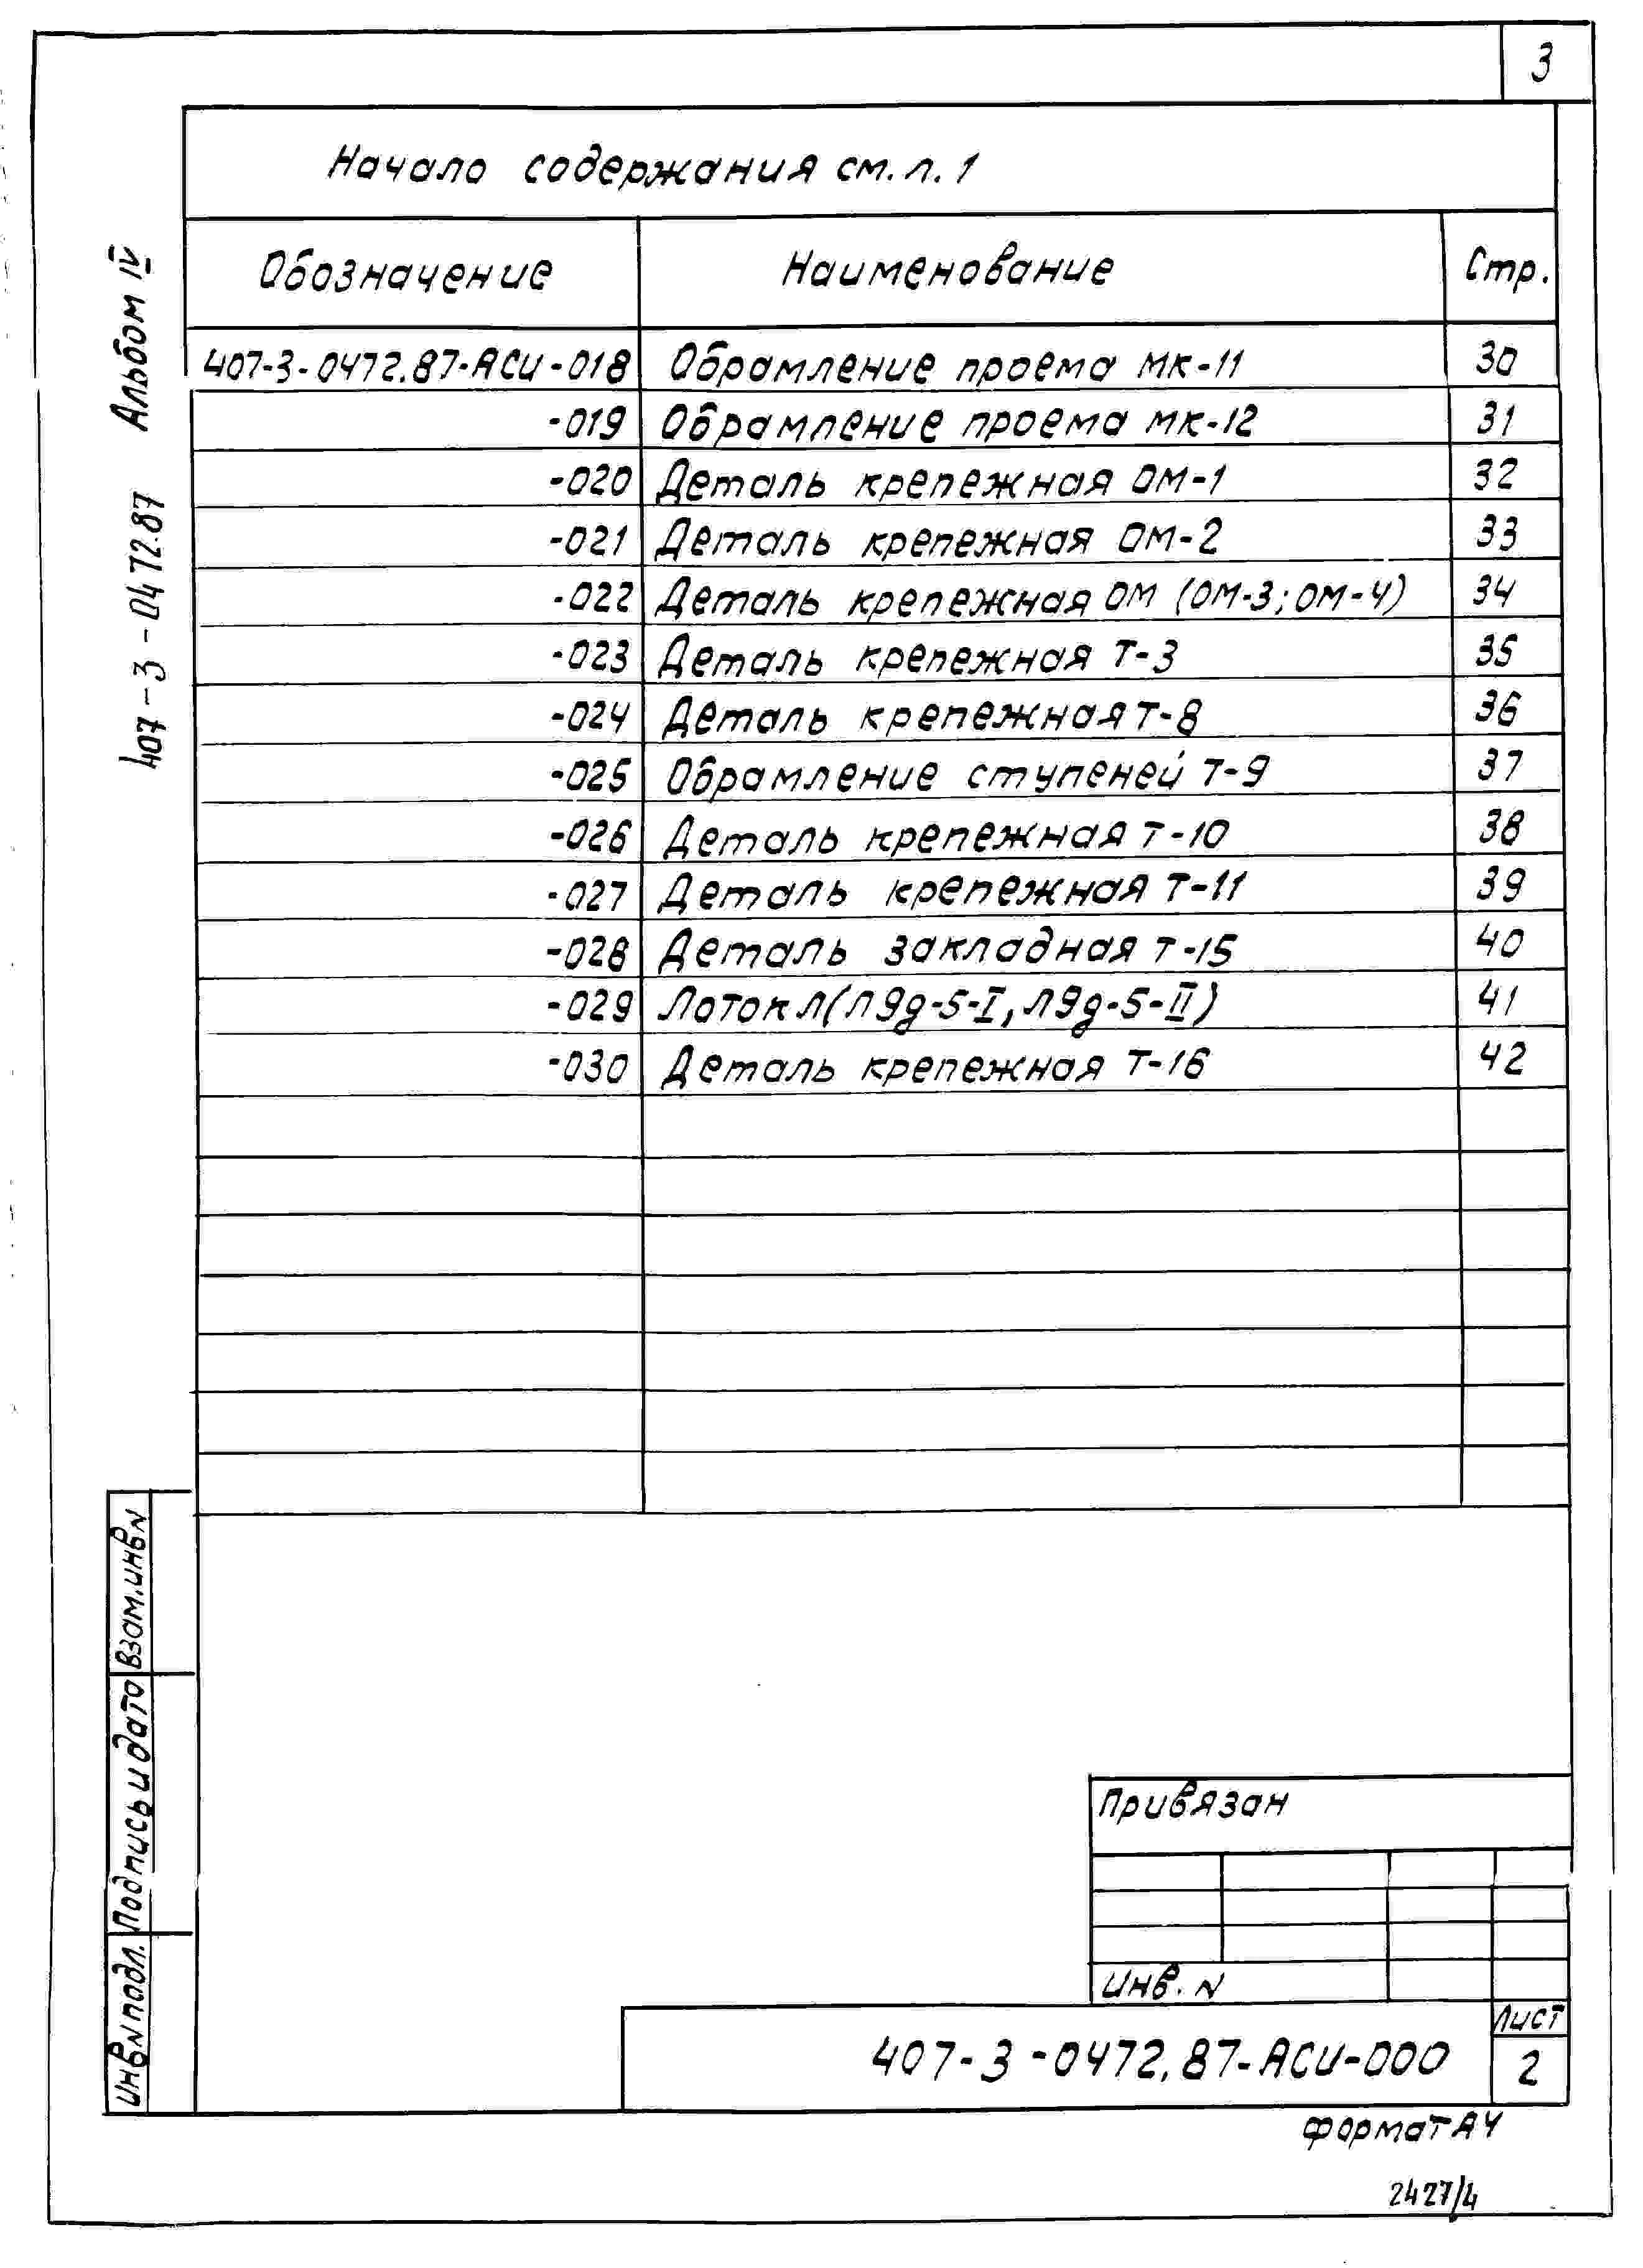 3
Начало содержания см. л. 1
Обозначение Наименование Стр.
407-3-0472.87-АСИ-018 Обрамление проема МК-11 30
-019 Обрамление проема МК-12 31
-020 Деталь крепежная ОМ-1 32
-021 Деталь крепежная ОМ-2 33
-022 Деталь крепежная ОМ (ОМ-3; ОМ-4) 34
-023 Деталь крепежная Т-3 35
-024 Деталь крепежная Т-8 36
-025 Обрамление ступеней Т-9 37
-026 Деталь крепежная Т-10 38
-027 Деталь крепежная Т-11 39
-028 Деталь закладная Т-15 40
-029 Лоток Л(Л9д-5-I, Л9д-5-II) 41
-030 Деталь крепежная Т-16 42
407-3-0472.87 Альбом IV
Инв N подл. Подпись и дата Взам. инв N
Привязан
Инв. N
407-3-0472.87-АСИ-000
Лист
2
Формат А4
2427/4